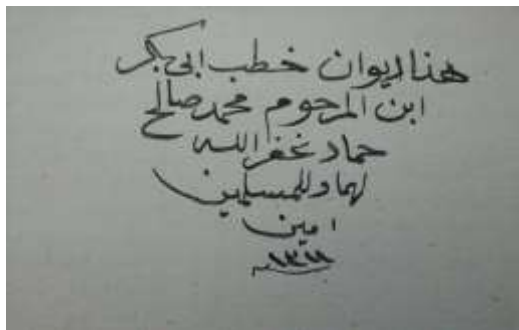 هذا ديوان خطب ابي بكر
ابن المرحوم محمد صالح
حماد غفر الله
لهما وللمسلمين
امين